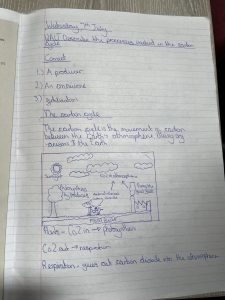 Wednesday 7th July
WALT Describe the processes involved in the carbon
cycle
Connect
1) A producer
2) An omnivore
3)
The carbon cycle
The carbon cycle is the movement of carbon
between the Earth's atmosphere, living org-
-anisms & the Earth.
Sunlight
CO2 in atmosphere
Photosynthesis
by producers
Fossil fuels
Plants - Co2 in → Photosynthesis
Co2 out → respiration
Respiration - gives out carbon dioxide into the atmosphere